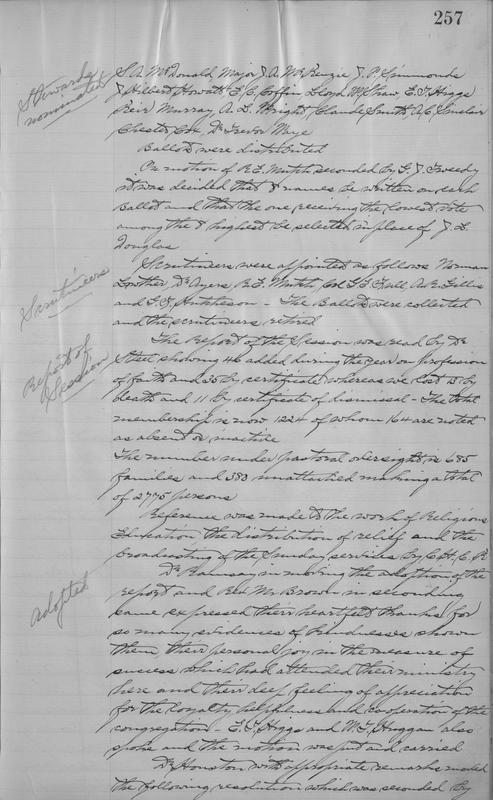 257
Stewards
nominated
S A McDonald, Major J A McKenzie J. P. Simmonds
J Hilbert Howatt E C Coffin Lloyd W Shaw E T Higgs
Reir Murray, A. L. Wright, Claude Smith A C, Sinclair
Chester Cox, Dr Trevor Maye
Ballots were distributed
On motion of R L Mutch seconded by G. J. Tweedy
it was decided that 8 names be written on each
Ballot and that the one receiving the lowest vote
among the 8 highest be selected in place of J. L.
Douglas
Scrutineers
Scrutineers were appointed as follows Norman
Lowther Dr Ayers R L Mutch, Col G E Full A. R. Gillis
and G. F. Hutcheson - The Ballots were collected
and the scrutineers retired
Report of
Session
The Report of the Session was read by Dr
Steel showing 46 added during the year on profession
of faith and 35 by certificate whereas we lost 15 by
death and 11 by certificate of dismissal - The total
membership is now 1224 of whom 164 are noted
as absent or inactive
The number under pastoral oversight is 685
families and 383 unattached making a total
of 2775 persons
Reference was made to the work of Religious
Education, the distribution of relief and the
broadcasting of the Sunday services by C. H. C. K
Adopted
Dr Ramsay in moving the adoption of the
report and Rev Mr Brown in seconding
same expressed their heartfelt thanks for
so many evidences of kindnesses shown
them their personal joy in the measure of
success which had attended their ministry
here and their deep feeling of appreciation
for the loyalty helpfulness and cooperation of the
congregation - E. T. Higgs and W. F. Huggan also
spoke and the motion was put and carried
Dr Houston with appropriate remarks moved
the following resolution which was seconded by